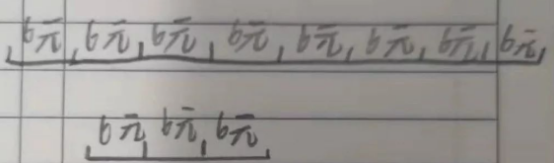 6元 6元 6元 6元 6元 6元 6元 6元
6元 6元 6元